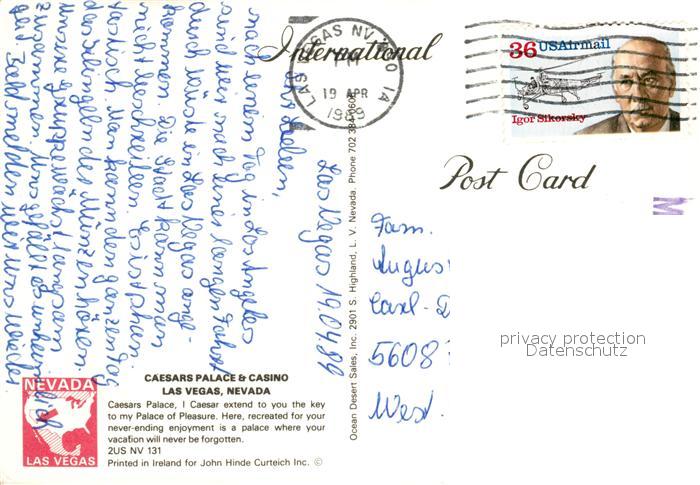 International
LAS VEGAS NV
19 APR
1989
36 USAirmail
Igor Sikorsky
Post Card
M
Las Vegas 19.04.89
Ihr Lieben,
nach einem Tag in Los Angeles
sind wir nach einer langen Fahrt
durch Wüste in Las Vegas ange-
kommen. Die Stadt kann man
nicht beschreiben. Es ist phan-
tastisch. Man kann den ganzen Tag
das Klingen der Münzen hören.
Unsere Gruppe wächst langsam
zusammen. Uns gefällt es unheim-
lich
gut. Bald melden wir uns wieder
Fam.
Augus
Carl-D
5608
West.
Ocean Desert Sales, Inc. 2901 S. Highland, L. V. Nevada. Phone 702
privacy protection
Datenschutz
NEVADA
LAS VEGAS
CAESARS PALACE & CASINO
LAS VEGAS, NEVADA
Caesars Palace, I Caesar extend to you the key
to my Palace of Pleasure. Here, recreated for your
never-ending enjoyment is a palace where your
vacation will never be forgotten.
2US NV 131
Printed in Ireland for John Hinde Curteich Inc. ©